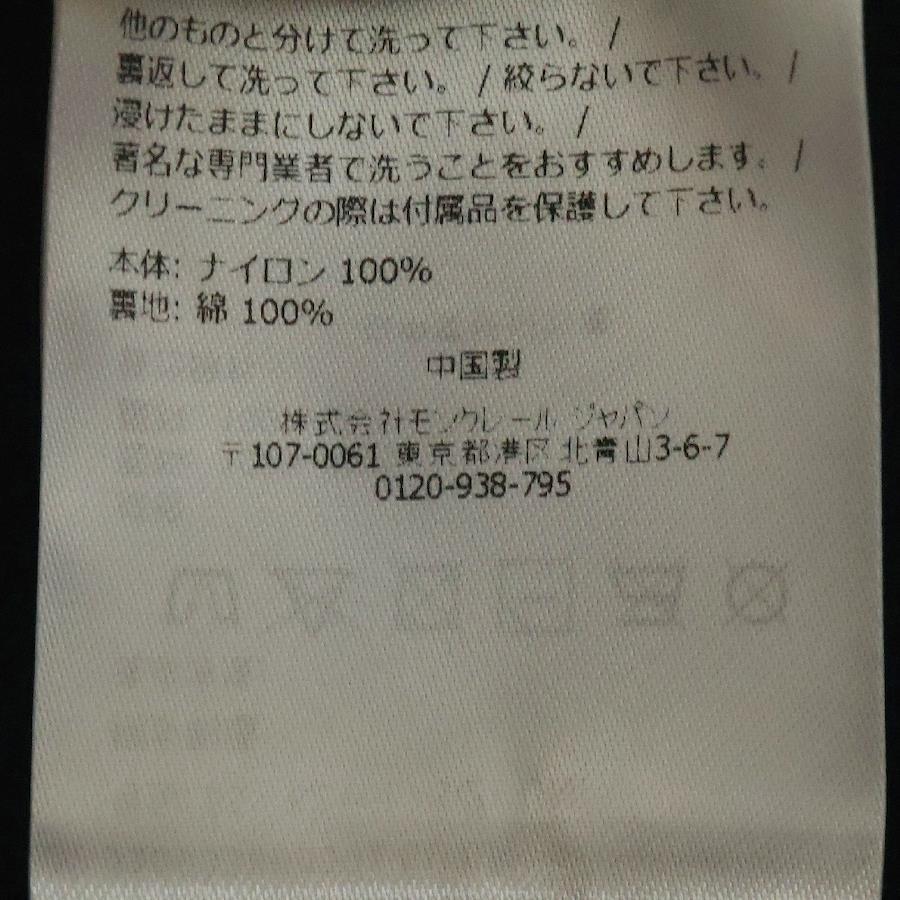 他のものと分けて洗って下さい。 /
裏返して洗って下さい。 / 絞らないで下さい。 /
浸けたままにしないで下さい。 /
著名な専門業者で洗うことをおすすめします。 /
クリーニングの際は付属品を保護して下さい。
本体: ナイロン 100%
裏地: 綿 100%
中国製
株式会社モンクレール ジャパン
〒107-0061 東京都港区 北青山3-6-7
0120-938-795